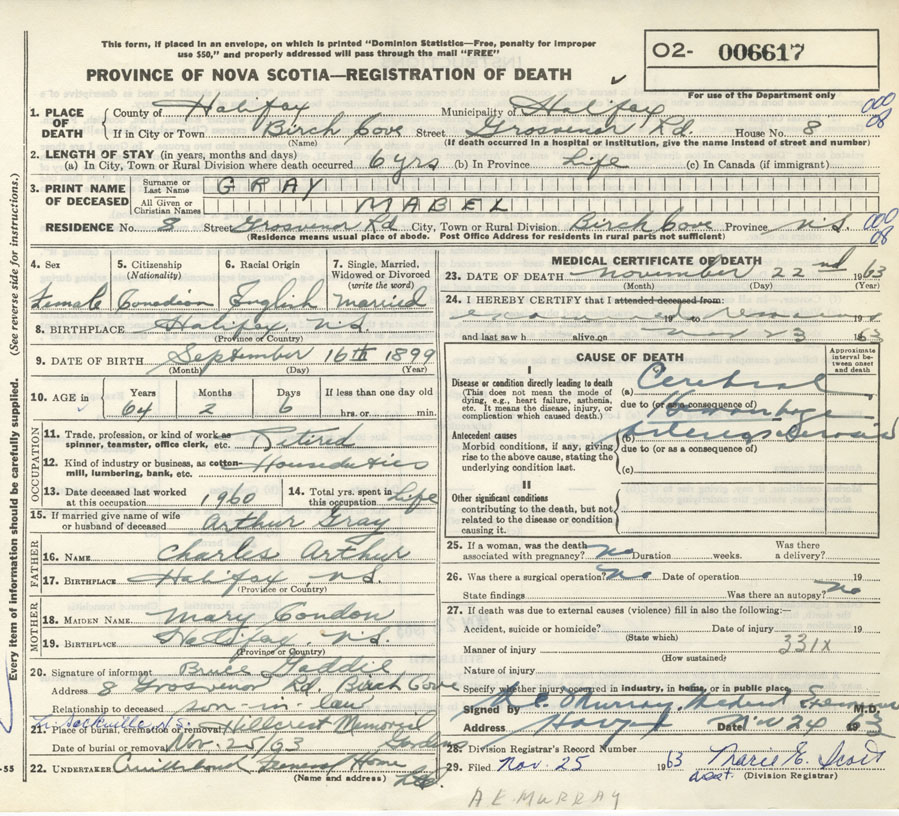 This form, if placed in an envelope, on which is printed "Dominion Statistics—Free, penalty for improper
use $50," and properly addressed will pass through the mail "FREE"
O2- 006617
PROVINCE OF NOVA SCOTIA—REGISTRATION OF DEATH
For use of the Department only
1. PLACE OF DEATH County of Halifax Municipality of Halifax
If in City or Town Birch Cove Street Grosvenor Rd. House No. 8
(Name) (If death occurred in a hospital or institution, give the name instead of street and number)
2. LENGTH OF STAY (in years, months and days)
(a) In City, Town or Rural Division where death occurred 6 yrs (b) In Province Life (c) In Canada (if immigrant)
3. PRINT NAME OF DECEASED Surname or Last Name GRAY
All Given or Christian Names MABEL
RESIDENCE No. 8 Street Grosvenor Rd City, Town or Rural Division Birch Cove Province N.S.
(Residence means usual place of abode. Post Office Address for residents in rural parts not sufficient)
4. Sex 5. Citizenship (Nationality) 6. Racial Origin 7. Single, Married, Widowed or Divorced (write the word)
Female Canadian English Married
8. BIRTHPLACE Halifax, N.S.
(Province or Country)
9. DATE OF BIRTH September 16th 1899
(Month) (Day) (Year)
10. AGE in Years Months Days If less than one day old
64 2 6 hrs. or min.
OCCUPATION
11. Trade, profession, or kind of work as spinner, teamster, office clerk, etc. Retired
12. Kind of industry or business, as cotton-mill, lumbering, bank, etc. Houseduties
13. Date deceased last worked at this occupation 1960 14. Total yrs. spent in this occupation Life
15. If married give name of wife or husband of deceased Arthur Gray
FATHER
16. NAME Charles Arthur
17. BIRTHPLACE Halifax, N.S.
(Province or Country)
MOTHER
18. MAIDEN NAME Mary Condon
19. BIRTHPLACE Halifax, N.S.
(Province or Country)
20. Signature of informant Bruce
Address 8 Grosvenor Rd. Birch Cove
Relationship to deceased son-in-law
Sackville N.S.
21. Place of burial, cremation or removal Hillcrest Memorial Gardens
Date of burial or removal Nov. 25/63
22. UNDERTAKER Funeral Home Ltd.
(Name and address)
MEDICAL CERTIFICATE OF DEATH
23. DATE OF DEATH November 22nd 1963
(Month) (Day) (Year)
24. I HEREBY CERTIFY that I attended deceased from:
examined remains 19 to 19
and last saw h alive on Nov 23 1963
CAUSE OF DEATH
Approximate interval between onset and death
I
Disease or condition directly leading to death
(This does not mean the mode of dying, e.g., heart failure, asthenia, etc. It means the disease, injury, or complication which caused death.)
(a) Cerebral
due to (or as a consequence of) Hemorrhage
Antecedent causes
Morbid conditions, if any, giving rise to the above cause, stating the underlying condition last.
(b) Arteriosclerosis
due to (or as a consequence of)
(c)
II
Other significant conditions
contributing to the death, but not related to the disease or condition causing it.
25. If a woman, was the death associated with pregnancy? No Duration weeks. Was there a delivery?
26. Was there a surgical operation? No Date of operation 19
State findings Was there an autopsy? No
27. If death was due to external causes (violence) fill in also the following:—
Accident, suicide or homicide? Date of injury 19
(State which)
Manner of injury 331X
(How sustained)
Nature of injury
Specify whether injury occurred in industry, in home, or in public place
Signed by Murray, Medical Examiner M.D.
Address Halifax Date Nov 24 1963
28. Division Registrar's Record Number
29. Filed Nov. 25 1963 Marie E. Scott
asst. (Division Registrar)
A E. MURRAY
Every item of information should be carefully supplied. (See reverse side for instructions.)
000
08
000
08
-55